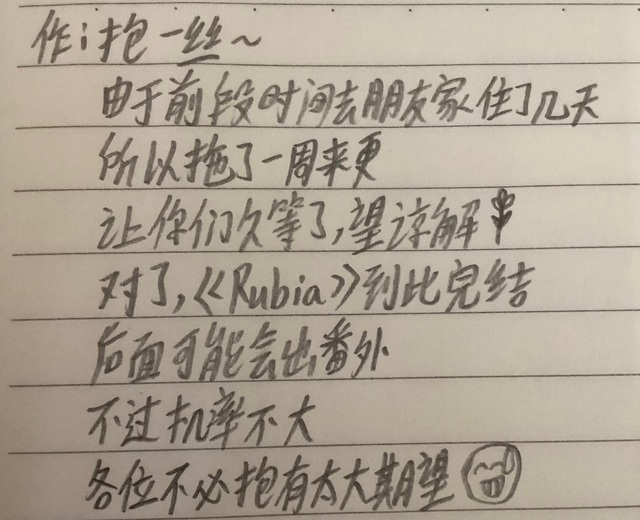 作：抱一丝～
由于前段时间去朋友家住了几天
所以拖了一周来更
让你们久等了，望谅解
对了，《Rubia》到此完结
后面可能会出番外
不过机率不大
各位不必抱有太大期望